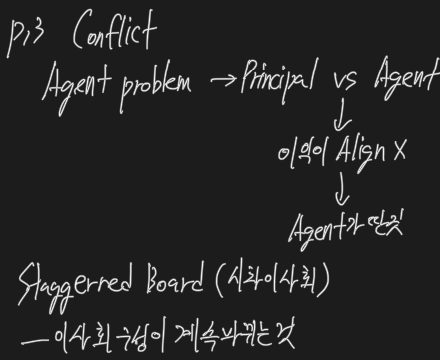 p.3 Conflict
Agent problem → Principal vs Agent
↓
이익이 Align X
↓
Agent가 딴짓
Staggerred Board (시차이사회)
— 이사회 구성이 계속 바뀌는 것